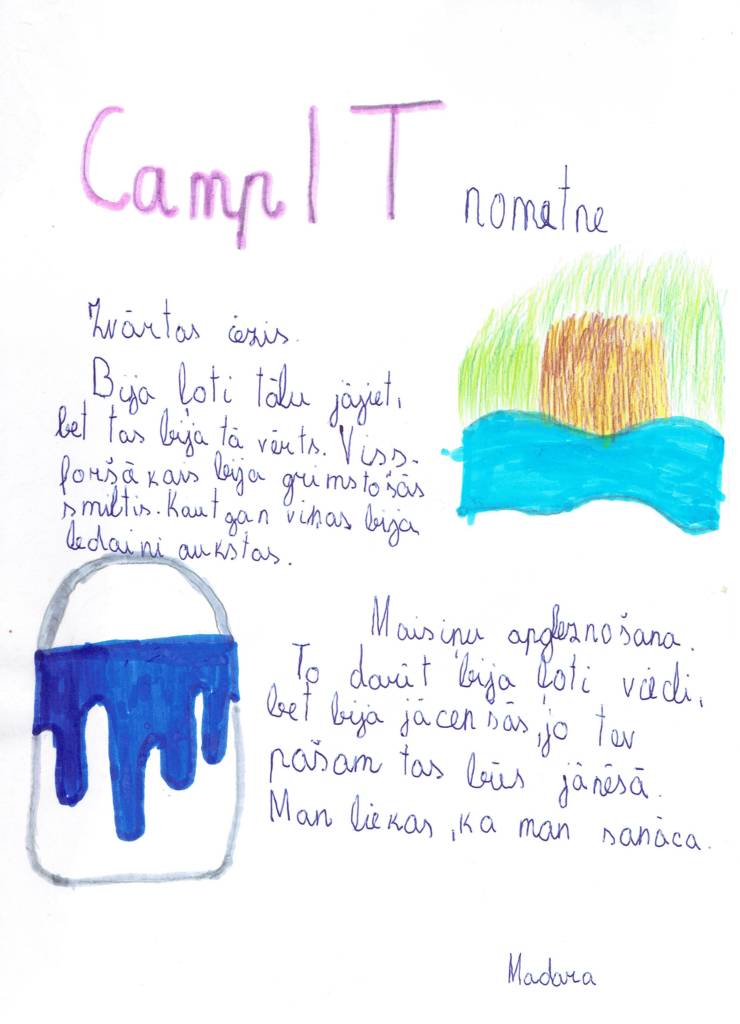 CampIT nometne
Zvārtas iezis.
Bija ļoti tālu jāiet,
bet tas bija tā vērts. Viss-
foršākais bija grimstošās
smiltis. Kaut gan viņas bija
ledaini aukstas.
Maisiņu apgleznošana.
To darīt bija ļoti viegli,
bet bija jācenšās, jo tev
pašam tas būs jānēsā.
Man liekas, ka man sanāca.
Madara